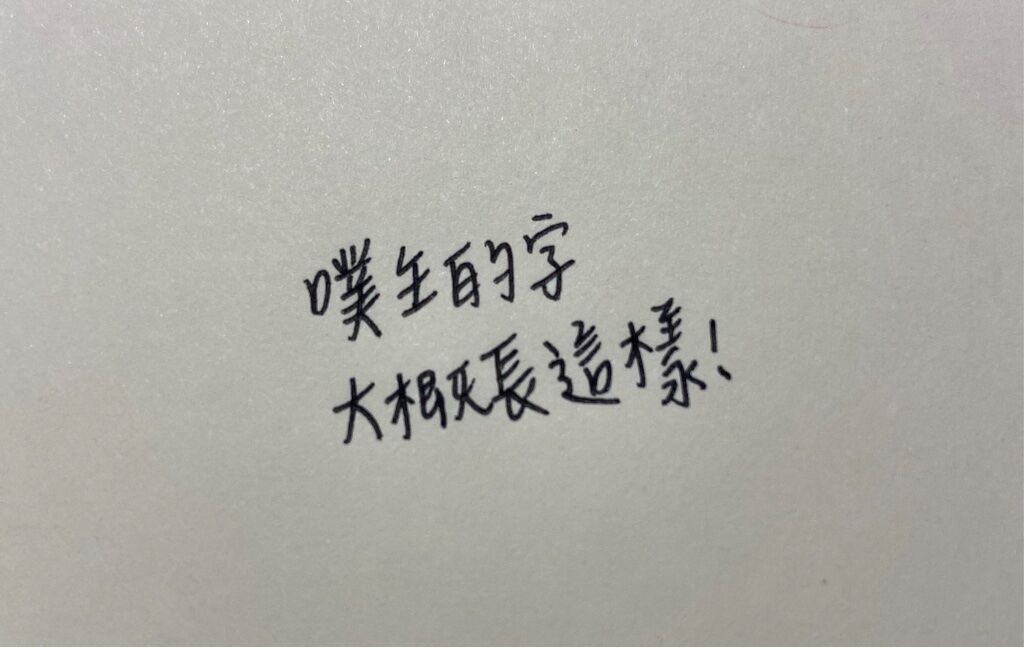 噗生的字
大概長這樣!